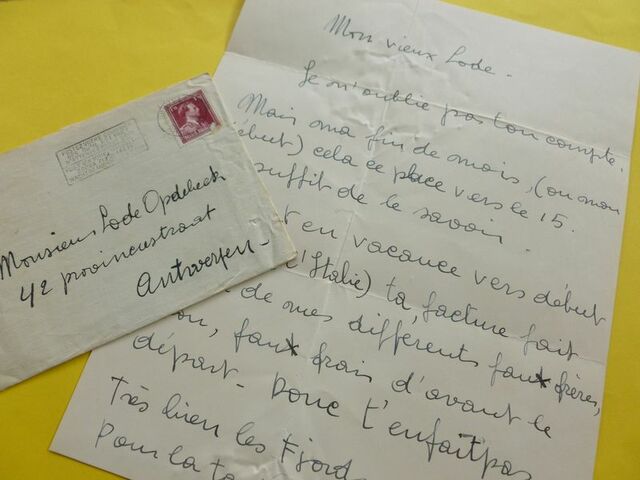 Monsieur Lode Opdebeek
42 provinciestraat
Antwerpen
Mon vieux Lode.
Je n'oublie pas ton compte.
Mais ma fin de mois, (ou mon
début) cela ce place vers le 15.
suffit de le savoir.
en vacance vers début
l'Italie) ta facture fait
de mes différents faux frères,
faux frais d'avant le
départ - Donc t'enfaitpas
Très bien les Fjord
Pour la